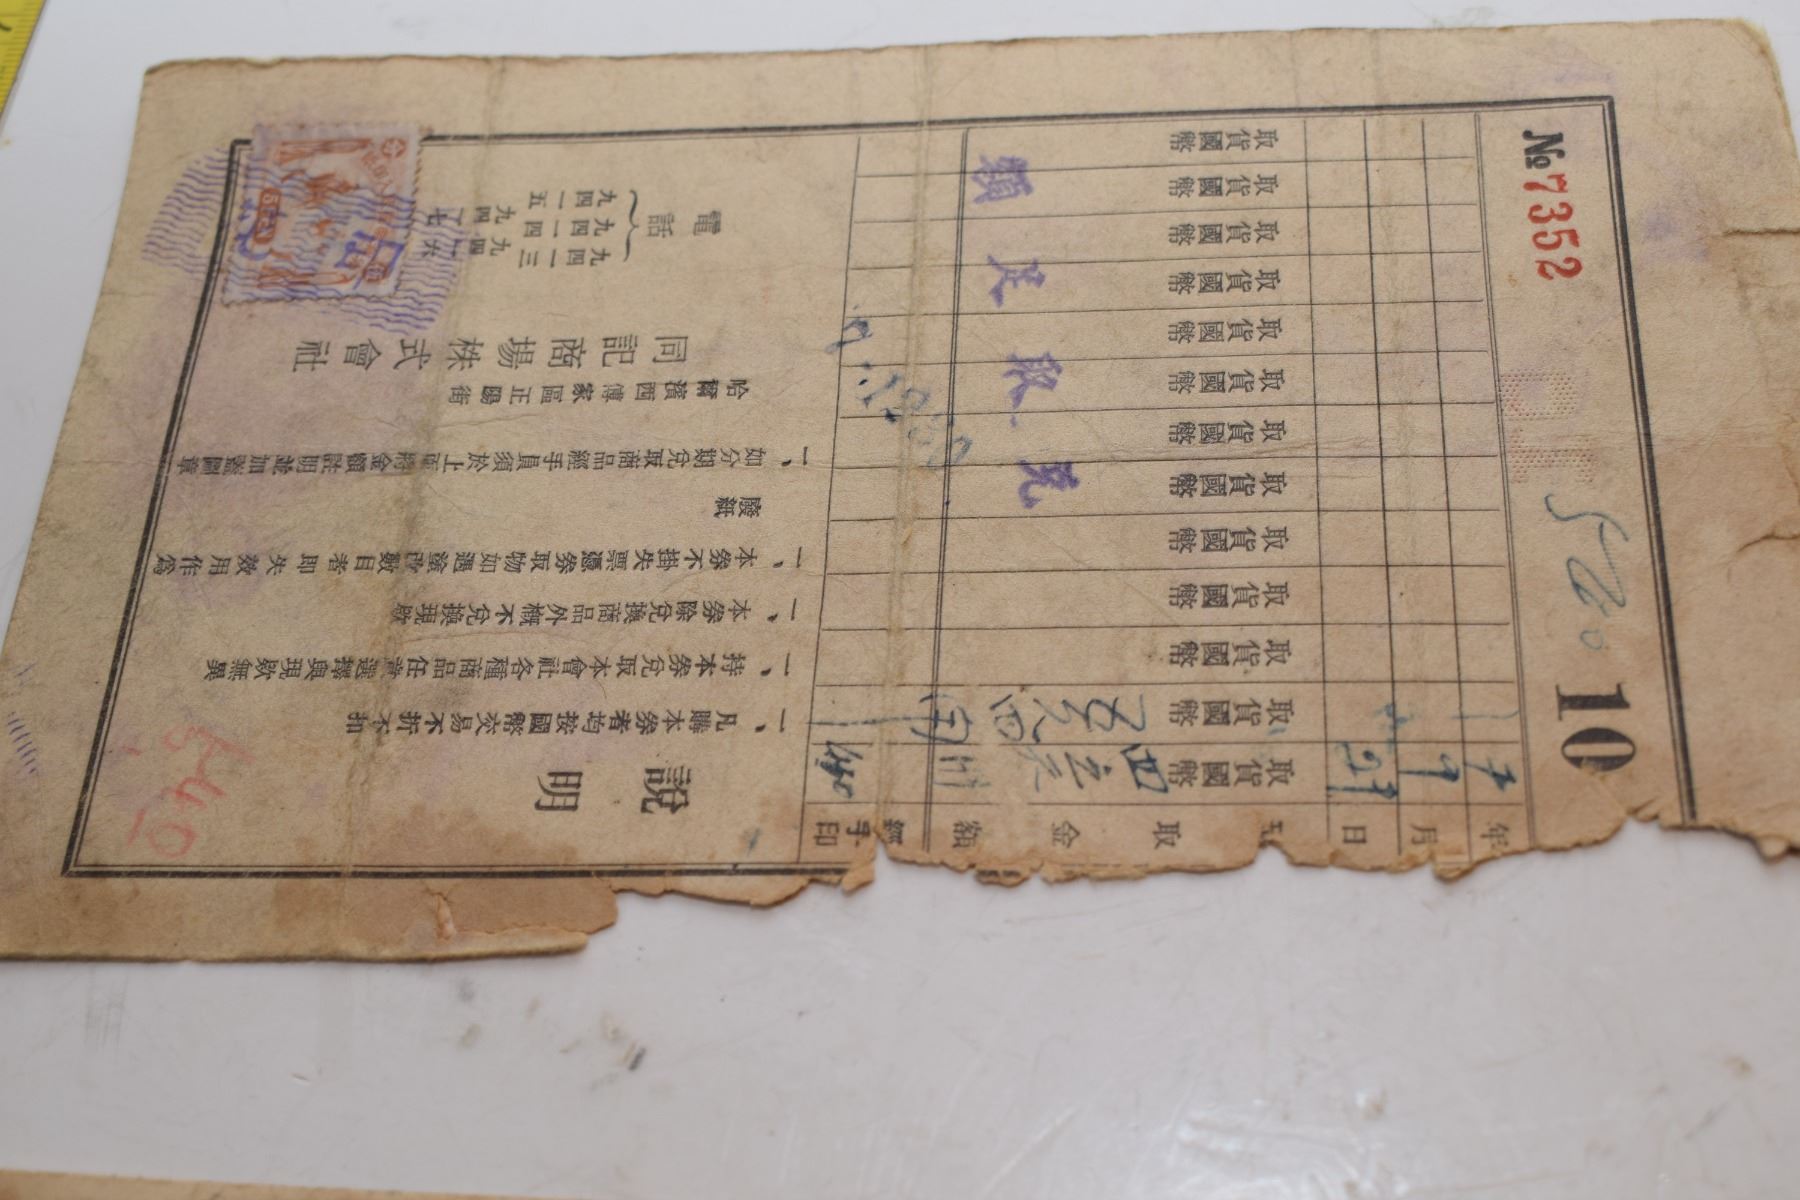 № 7352
10
年
月
日
取
金
額
經手印
取貨國幣
取貨國幣
取貨國幣
取貨國幣
取貨國幣
取貨國幣
取貨國幣
取貨國幣
取貨國幣
取貨國幣
取貨國幣
取貨國幣
取貨國幣
7
9
21
額足取完
說明
一、凡購本券者均按國幣交易不折不扣
一、持本券兌取本會社各種商品任意選擇與現欵無異
一、本券除兌換商品外概不兌換現欵
一、本券不掛失票憑券取物如遇塗改數目者即失效用作為
廢紙
一、如分期兌取商品經手員須於上面將金額註明並加盖圖章
哈爾濱西傅家區正陽街
同記商場株式會社
電話
九四一三
九四一四
九四一五
540